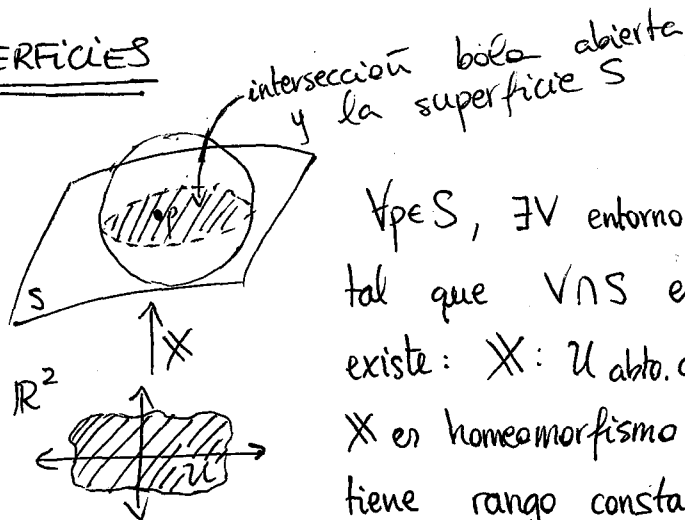 ERFICIES
intersección bola abierta
y la superficie S
p
S
∀p∈S, ∃V entorno
tal que V∩S e
𝕏
existe: 𝕏: U abto. c
ℝ²
𝕏 es homeomorfismo
U
tiene rango consta